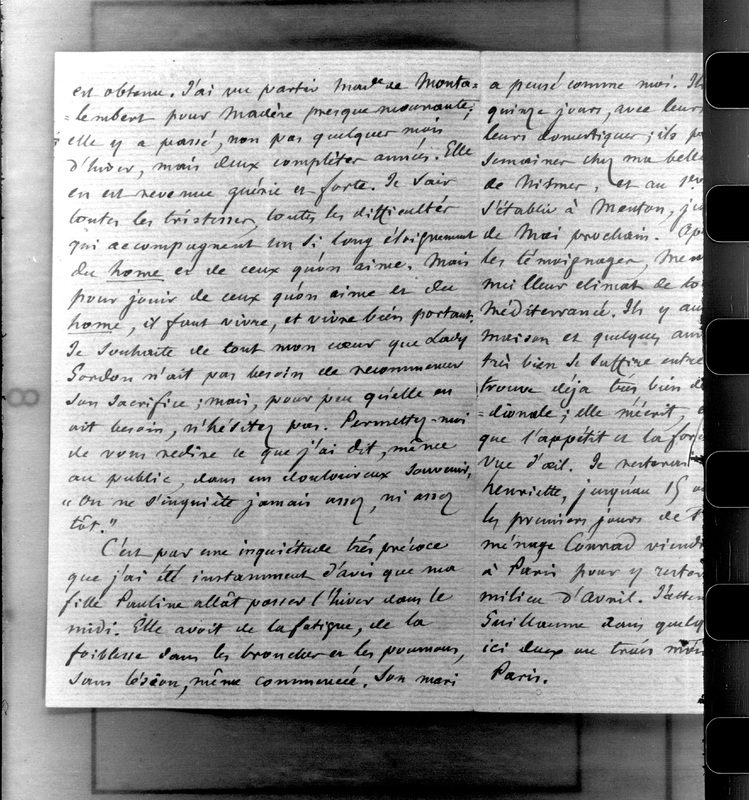 est obtenu. J'ai vu partir Mad^e de Monta=
=lembert pour Madère presque mourante;
elle y a passé, non pas quelques mois
d'hiver, mais deux complètes années. Elle
en est revenue guérie et forte. Je sais
toutes les tristesses, toutes les difficultés
qui accompagnent un si long éloignement
du home et de ceux qu'on aime. Mais
pour jouir de ceux qu'on aime et du
home, il faut vivre, et vivre bien portant.
Je souhaite de tout mon cœur que Lady
Gordon n'ait pas besoin de recommencer
son sacrifice; mais, pour peu qu'elle en
ait besoin, n'hésitez pas. Permettez-moi
de vous redire ce que j'ai dit, même
au public, dans un douloureux souvenir,
"On ne s'inquiète jamais assez, ni assez
tôt."
C'est par une inquiétude très précoce
que j'ai été instamment d'avis que ma
fille Pauline allât passer l'hiver dans le
midi. Elle avoit de la fatigue, de la
foiblesse dans les bronches et les poumons,
sans lésion, même commencée. Son mari
a pensé comme moi. Ils
quinze jours, avec leurs
leurs domestiques; ils
semaines chez ma belle
de Nismes, et au
s'établir à Menton,
de Mai prochain.
les témoignages,
meilleur climat de
Méditerranée. Ils y
maison et quelques
très bien se suffire entre
trouve déja très bien
=dionale; elle m'écrit,
que l'appétit et la
vue d'œil. Je resterai
henriette, jusqu'au 15
les premiers jours de
ménage Conrad
à Paris pour y rester
milieu d'avril.
Guillaume dans
ici deux ou trois mois
Paris.
8